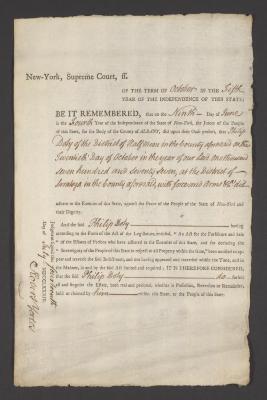 New-York, Supreme Court, ss.
OF THE TERM OF October IN THE Fifth
YEAR OF THE INDEPENDENCE OF THIS STATE:
BE IT REMEMBERED, that on the Ninth Day of June
in the Fourth Year of the Independence of the State of New-York, the Jurors of the People
of this State, for the Body of the County of ALBANY, did upon their Oath present, that Philip
Doty of the District of Halfmoon in the County aforesaid on the
Twentieth Day of October in the year of our Lord one thousand
seven hundred and seventy seven, at the District of
Saratoga in the County aforesaid, with force and Arms &c. did
adhere to the Enemies of this State, against the Peace of the People of the State of New-York and
their Dignity.
And the said Philip Doty having
according to the Form of the Act of the Legislature, entitled, "An Act for the Forfeiture and Sale
of the Estates of Persons who have adhered to the Enemies of this State, and for declaring the
Sovereignty of the People of this State in respect to all Property within the same," been notified to appear
and traverse the said Indictment, and not having appeared and traversed within the Time, and in
the Manner, in and by the said Act limited and required; IT IS THEREFORE CONSIDERED,
that the said Philip Doty do
all and singular the Estate, both real and personal, whether in Possession, Reversion or Remainder,
held or claimed by him within this State, to the People of this State.
Judgment signed the fourteenth
Day of July MDCCLXXXIII.
Robert Yates